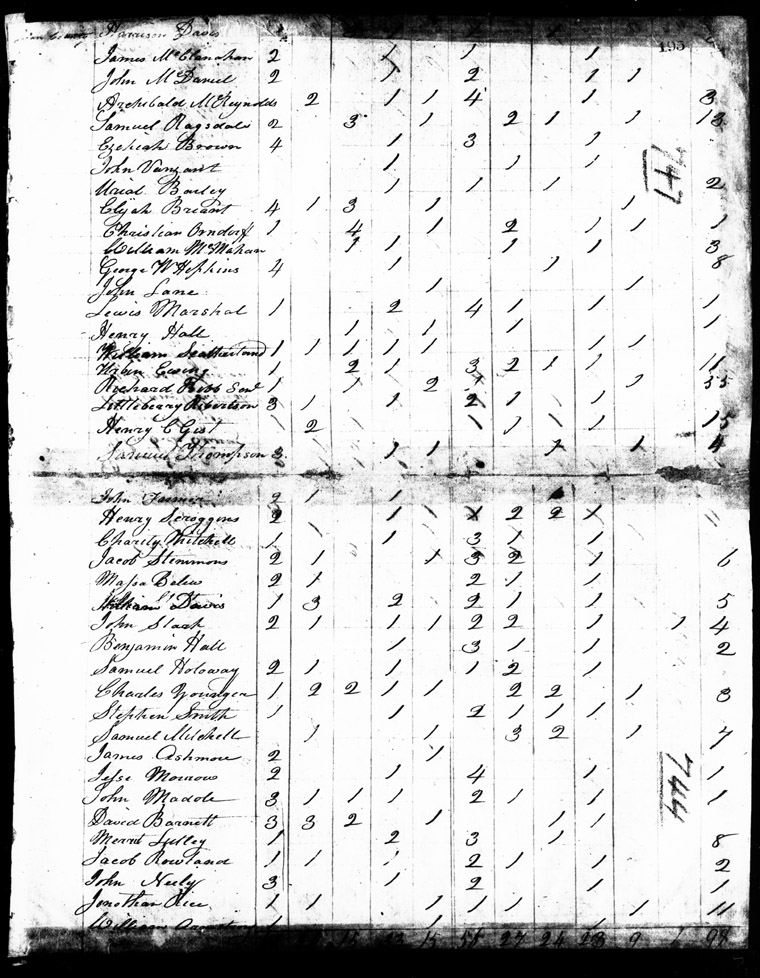 Harrison Davis
195
James McClanahan 2 1 1 1
John McDaniel 2 1 2 1 1
Archibald McReynolds 2 1 1 4 1 3
Samuel Ragsdale 2 3 1 2 1 1 13
Ezekiah Brown 4 1 3 1
John Vanzant 1 1 1
747
Uriah Bailey 1 1 1 2
Elijah Briant 4 1 3 1 1
Christian Orndorf 1 4 1 2 1 1 1
William McMahan 1 1 1 1 3
George W Hopkins 4 1 1 8
John Lane 1 1
Lewis Marshal 1 2 4 1 1 1
Henry Hall 1 1 1 1
William 1 1 1 1 1 1 1
Urbin Ewing 1 2 1 3 2 1 1 11
Richard Bibb Senr 1 1 2 1 1 55
Littlebeary Robertson 3 1 1 2 1 1
Henry C Gist 1 2 1 1 1 1 15
Samuel Thompson 3 1 1 1 1 4
John 2 1 1
Henry Scroggins 2 1 1 1 2 2 1
Charity Mitchell 1 1 1 3 1 1
Jacob Stemmons 2 1 1 3 2 1 6
Massa Belew 2 1 2 1 1
William Davis 1 3 2 2 1 1 5
John Slack 2 1 1 1 2 2 1 1 4
Benjamin Hall 1 3 1 1 2
Samuel Holoway 2 1 1 1 2 1
Charles Younger 1 2 2 1 1 2 2 1 3
Stephen Smith 1 1 2 1 1 1
Samuel Mitchell 1 1 3 2 1 7
James Ashmore 2 1
Jesse Morrow 2 1 4 1 1
744
John Maddole 3 1 1 1 2 1 1 1
David Barnett 3 3 2 1 1 1
Merrit 1 2 3 1 8
Jacob Rowland 1 1 1 2 1 1 2
John Neely 3 1 2 1 1
Jonothan Rice 1 1 1 1 1 1 1 11
William 1 1 1
15 55 27 24 28 9 1 98